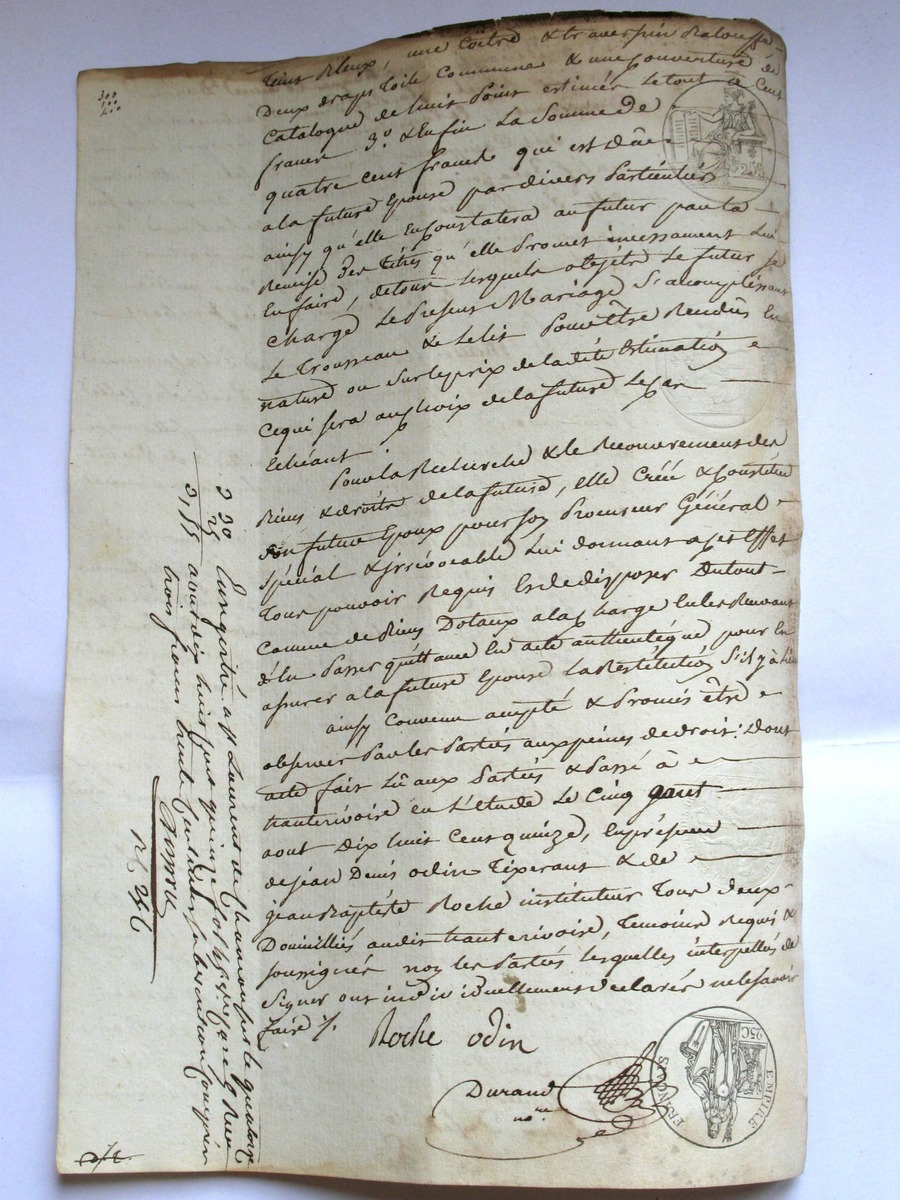 300
100
200
teint bleux, une Coëtre & traverpin Baloufse
Deux draps toile Commune & une Couverture dé
Catalogue de huit points estimés le tout à Cent
francs 3.º & Enfin La Somme De
quatre cent francs qui est dûe
a la future Epouse par divers Particuliés
ainsy qu'elle En Constatera au futur par la
Remise Des titres qu'elle Promet incessament Lui
En faire, de tous lesquels objets Le futur se
chargé Le Present Mariage S'acomplissant
Le Trousseau & Le lit Pour être Rendûs En
nature ou sur le prix de la dite Estimation
Ce qui sera au choix de la future Le Cas
Echéant.
Pour la Recherche & le Recouvrement des
Biens & droits de la future, elle Créé & Constitue
son future Epoux pour son Procureur Général
Spécial & irrévocable Lui donnant a cet Effet
Tous pouvoir Requis Et de disposer Du tout
Comme de Biens Dotaux a la Charge En les Recevant
d'En Passer quittance En acte authentique pour En
assurer a la future Epouse La Restitution S'il y à lieu
ainsy Convenu accepté & Promis être
observer Par les Partiés aux peines de droit: Dont
acte fait Lû aux Partiés & Passé à
hauterivoire en L'étude Le Cinq
aout Dix huit Cent quinze, En présence
de Jean Denis odin Tixerant & de
jean Baptéste Roche instituteur Tous deux
Domicilliés audit hauterivoire, Temoins Requis &
soussignés non les Partiés lesquelles interpellés de
signer ont individuellement déclarés ne le savoir
faire /.
Roche odin
Durand
nore
25C
EMPIRE
FRANÇOIS
25C
3 30
25
3,55
Enregistré a St Laurent de Chamousset le quatorze
aout dix huit cent quinze
trois francs trente centimes subvention Comprise